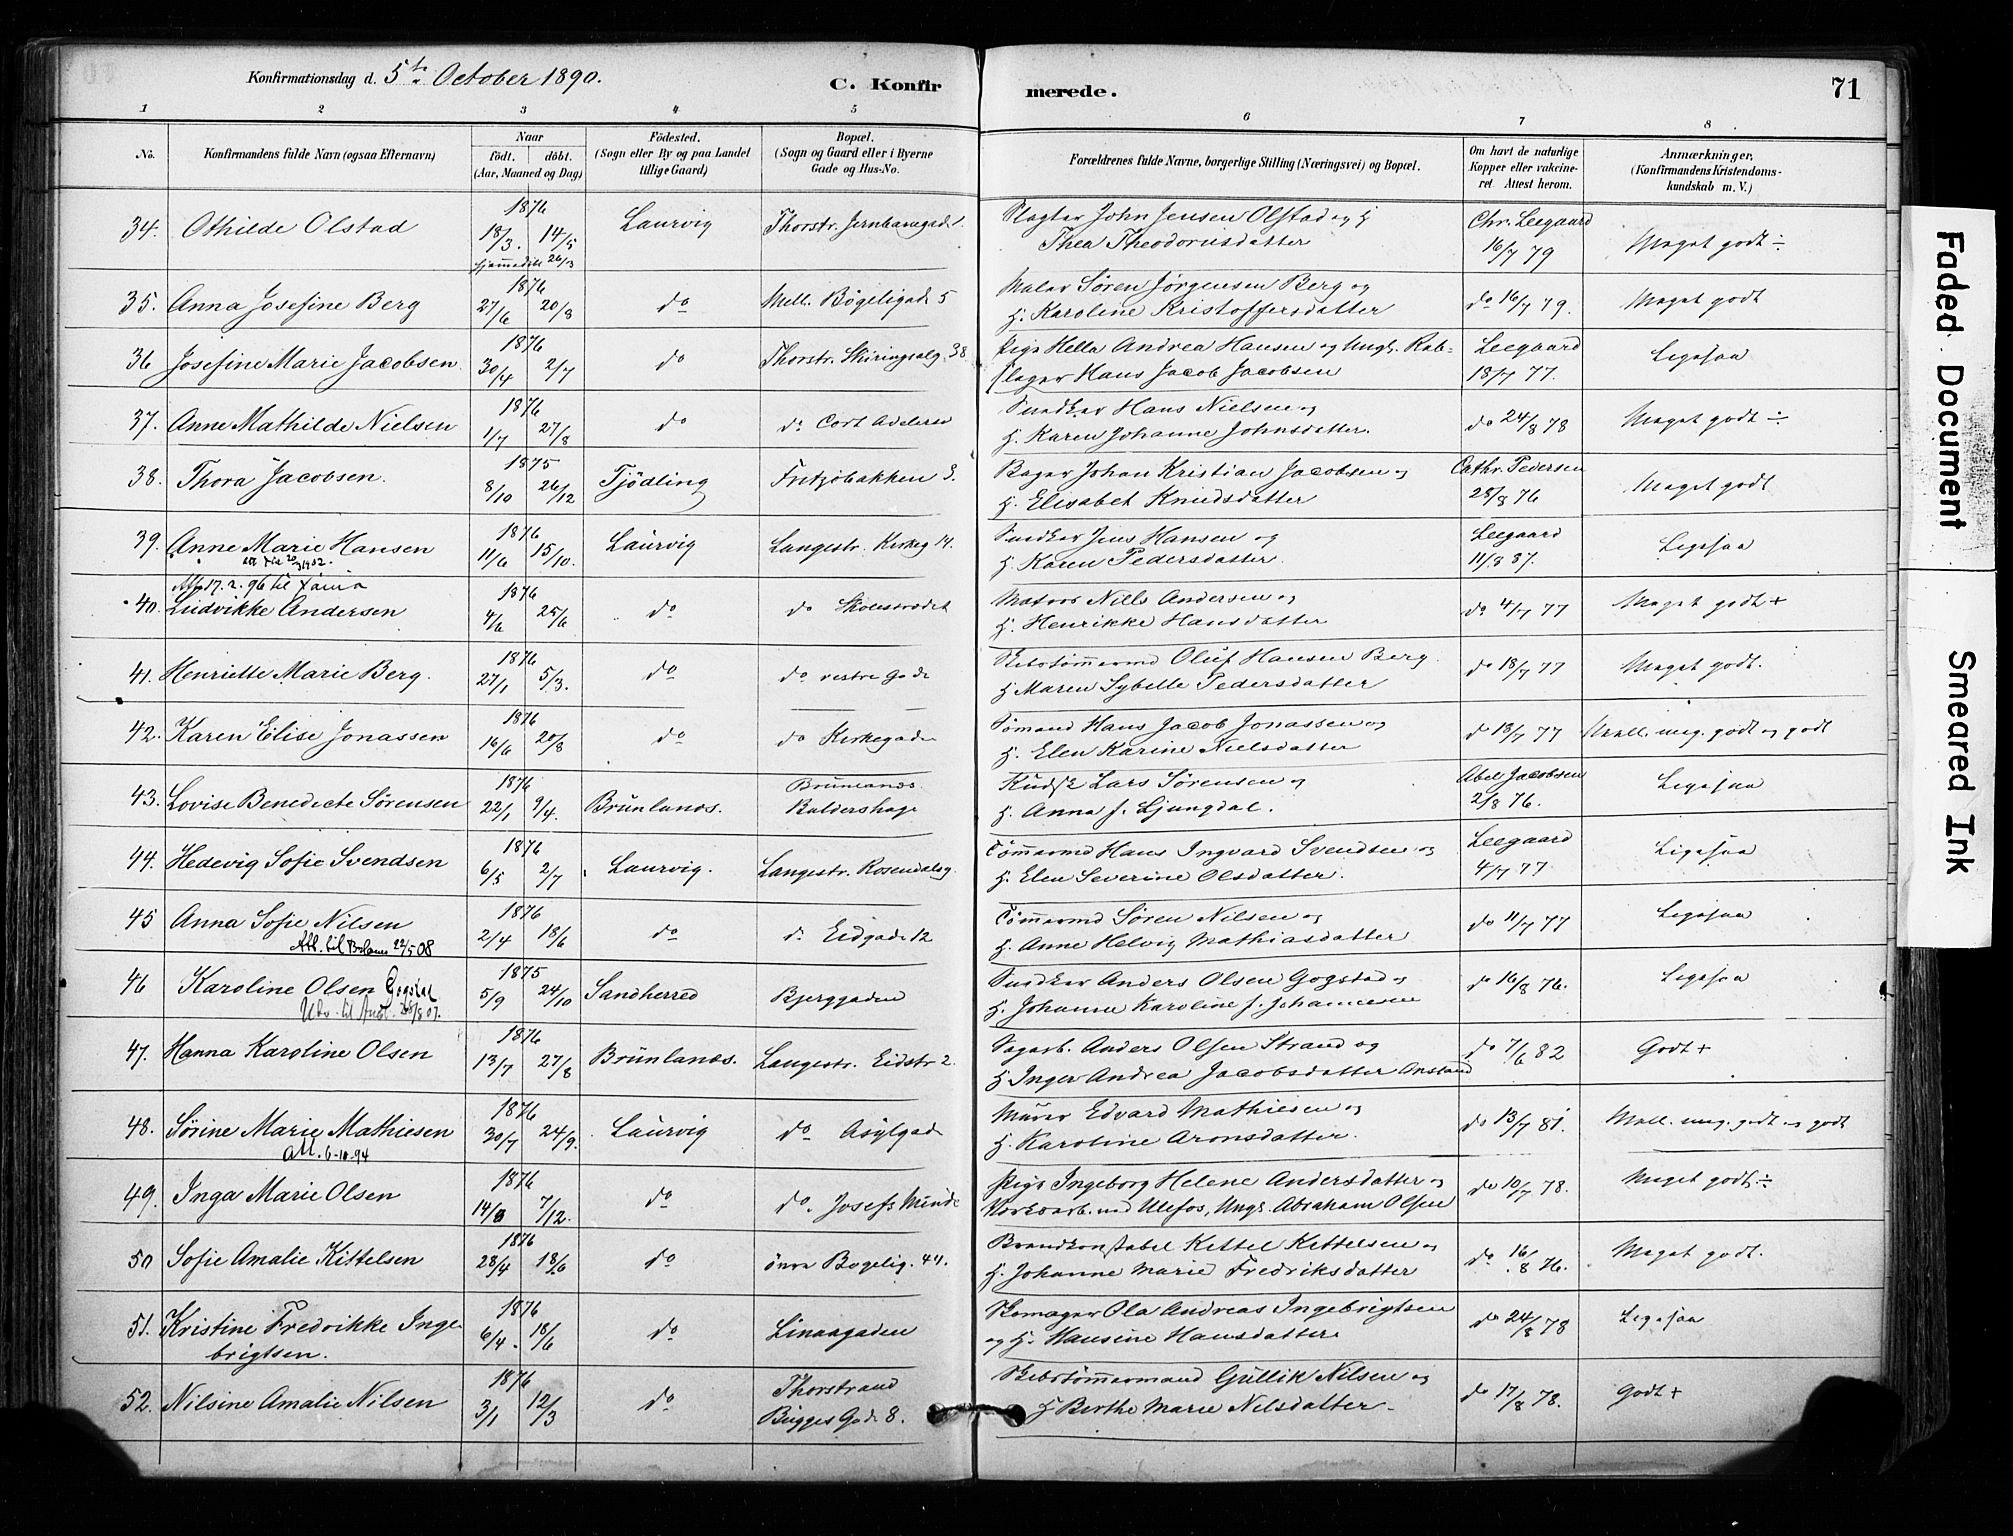 Konfirmationsdag d. 5te October 1890.
C. Konfirmerede.
71
1 2 3 4 5 6 7 8
No.
Konfirmandens fulde Navn (ogsaa Efternavn)
Naar
födt. döbt.
(Aar, Maaned og Dag)
Födested.
(Sogn eller By og paa Landet
tillige Gaard)
Bopæl.
(Sogn og Gaard eller i Byerne
Gade og Hus-No.
Forældrenes fulde Navne, borgerlige Stilling (Næringsvei) og Bopæl.
Om havt de naturlige
Kopper eller vakcine-
ret. Attest herom.
Anmærkninger.
(Konfirmandens Kristendoms-
kundskab m. V.)
34. Othilde Olstad 1876 18/3. 14/5 hjemmedöbt 26/3 Laurvig Thorstr. Jernbanegade 1.
Slagter John Jensen Olstad og H
Thea Theodorusdatter
Chr. Leegaard 16/7 79 Meget godt ÷
35. Anna Josefine Berg 1876 27/6 20/8 do Mell. Bøgeligade 5
Maler Søren Jørgensen Berg og
H. Karoline Kristoffersdatter
do 16/7 79. Meget godt
36 Josefine Marie Jacobsen 1876 30/4 2/7 do Thorstr. Skiringsalg. 38
Pige Hella Andrea Hansen og Ungk. Reb-
slager Hans Jacob Jacobsen
Leegaard 18/7 77. Ligesaa
37. Anne Mathilde Nielsen 1876 1/7 27/8 do do Cort Adelersg
Snedker Hans Nielsen og
H. Karen Johanne Johnsdatter.
do 24/8 78 Meget godt ÷
38. Thora Jacobsen. 1875 8/10 26/12 Tjödling Fritzöbakken 3.
Bager Johan Kristian Jacobsen og
H. Elisabet Knudsdatter
Cathr. Pedersen 28/8 76 Meget godt
39. Anne Marie Hansen 1876 11/6 15/10. Laurvig Langestr. Kirkeg 14.
Snedker Jens Hansen og
H. Karen Pedersdatter.
Leegaard 11/8 87. Ligesaa
40. Ludvikke Andersen 1876 4/6 25/6 do do Skolestrædet
Matros Niels Andersen og
H. Henrikke Hansdatter
do 4/7 77 Meget godt +
41. Henriette Marie Berg. 1876 27/1 5/3. do do vestre Gade
Skibstömmermd Oluf Hansen Berg
H Maren Sybelle Pedersdatter
do 18/7 77 Meget godt.
42. Karen Elise Jonassen 1876 16/6 20/8 do do Kirkegade
Sömand Hans Jacob Jonassen og
H. Elen Karine Nielsdatter
do 18/7 77 Mell. meg. godt og godt
43. Lovise Benedicte Sörensen 1876 22/1 9/4. Brunlanæs. Brunlanæs. Baldershage
Kudsk Lars Sörensen og
H. Anna J. Ljungdal.
Abel Jacobsen 2/8 76. Ligesaa
44. Hedevig Sofie Svendsen 1876 6/5 2/7 Laurvig. Langestr. Rosendalsg.
Tömmermd Hans Ingvard Svendsen og
H. Elen Severine Olsdatter.
Leegaard 4/7 77 Ligesaa
45 Anna Sofie Nilsen 1876 2/4 18/6 do do Eidgade 12
Att. til Brlanæs 22/5 08
Tömmermd Sören Nilsen og
H. Anne Helvig Mathiasdatter
do 11/7 77 Ligesaa
46 Karoline Olsen Gogstad 1875 5/9 24/10 Sandherred Bjerggaden
Snedker Anders Olsen Gogstad og
H. Johanne Karoline J. Johannesen
do 16/8 76. Ligesaa
47. Hanna Karoline Olsen 1876 13/7 27/8 Brunlanæs. Langestr. Eidstr 2.
Sagarb. Anders Olsen Strand og
H Inger Andrea Jacobsdatter
do 7/6 82 Godt +
48. Sörine Marie Mathiesen 1876 30/7 24/9. Laurvig do Asylgade
Att. 6-10-94
Murer Edvard Mathiesen og
H. Karoline Aronsdatter.
do 13/7 81. Mell. meg. godt og godt
49. Inga Marie Olsen 1876 7/12. do do. Josefs Minde
Pige Ingeborg Helene Andersdatter og
Værksarb. ved Ulefos, Ungk. Abraham Olsen
do 10/7 78. Meget godt ÷
50 Sofie Amalie Kittelsen 1876 28/4 18/6 do övre Bögelig. 44.
Brandkonstabel Kittel Kittelsen og
H. Johanne Marie Fredriksdatter
do 16/8 76. Meget godt.
51. Kristine Fredrikke Inge- 1876 6/4. 18/6 do Linaagaden
brigtsen.
Skomager Ola Andreas Ingebrigtsen
og H. Hansine Hansdatter
do 24/8 78 Ligesaa
52. Nilsine Amalie Nilsen 1876 3/1 12/3 do Thorstrand Bugges Gade 8.
Skibstömmermand Gullik Nilsen og
H Berthe Marie Nilsdatter.
do 17/8 78. Godt +
Faded Document
Smeared Ink